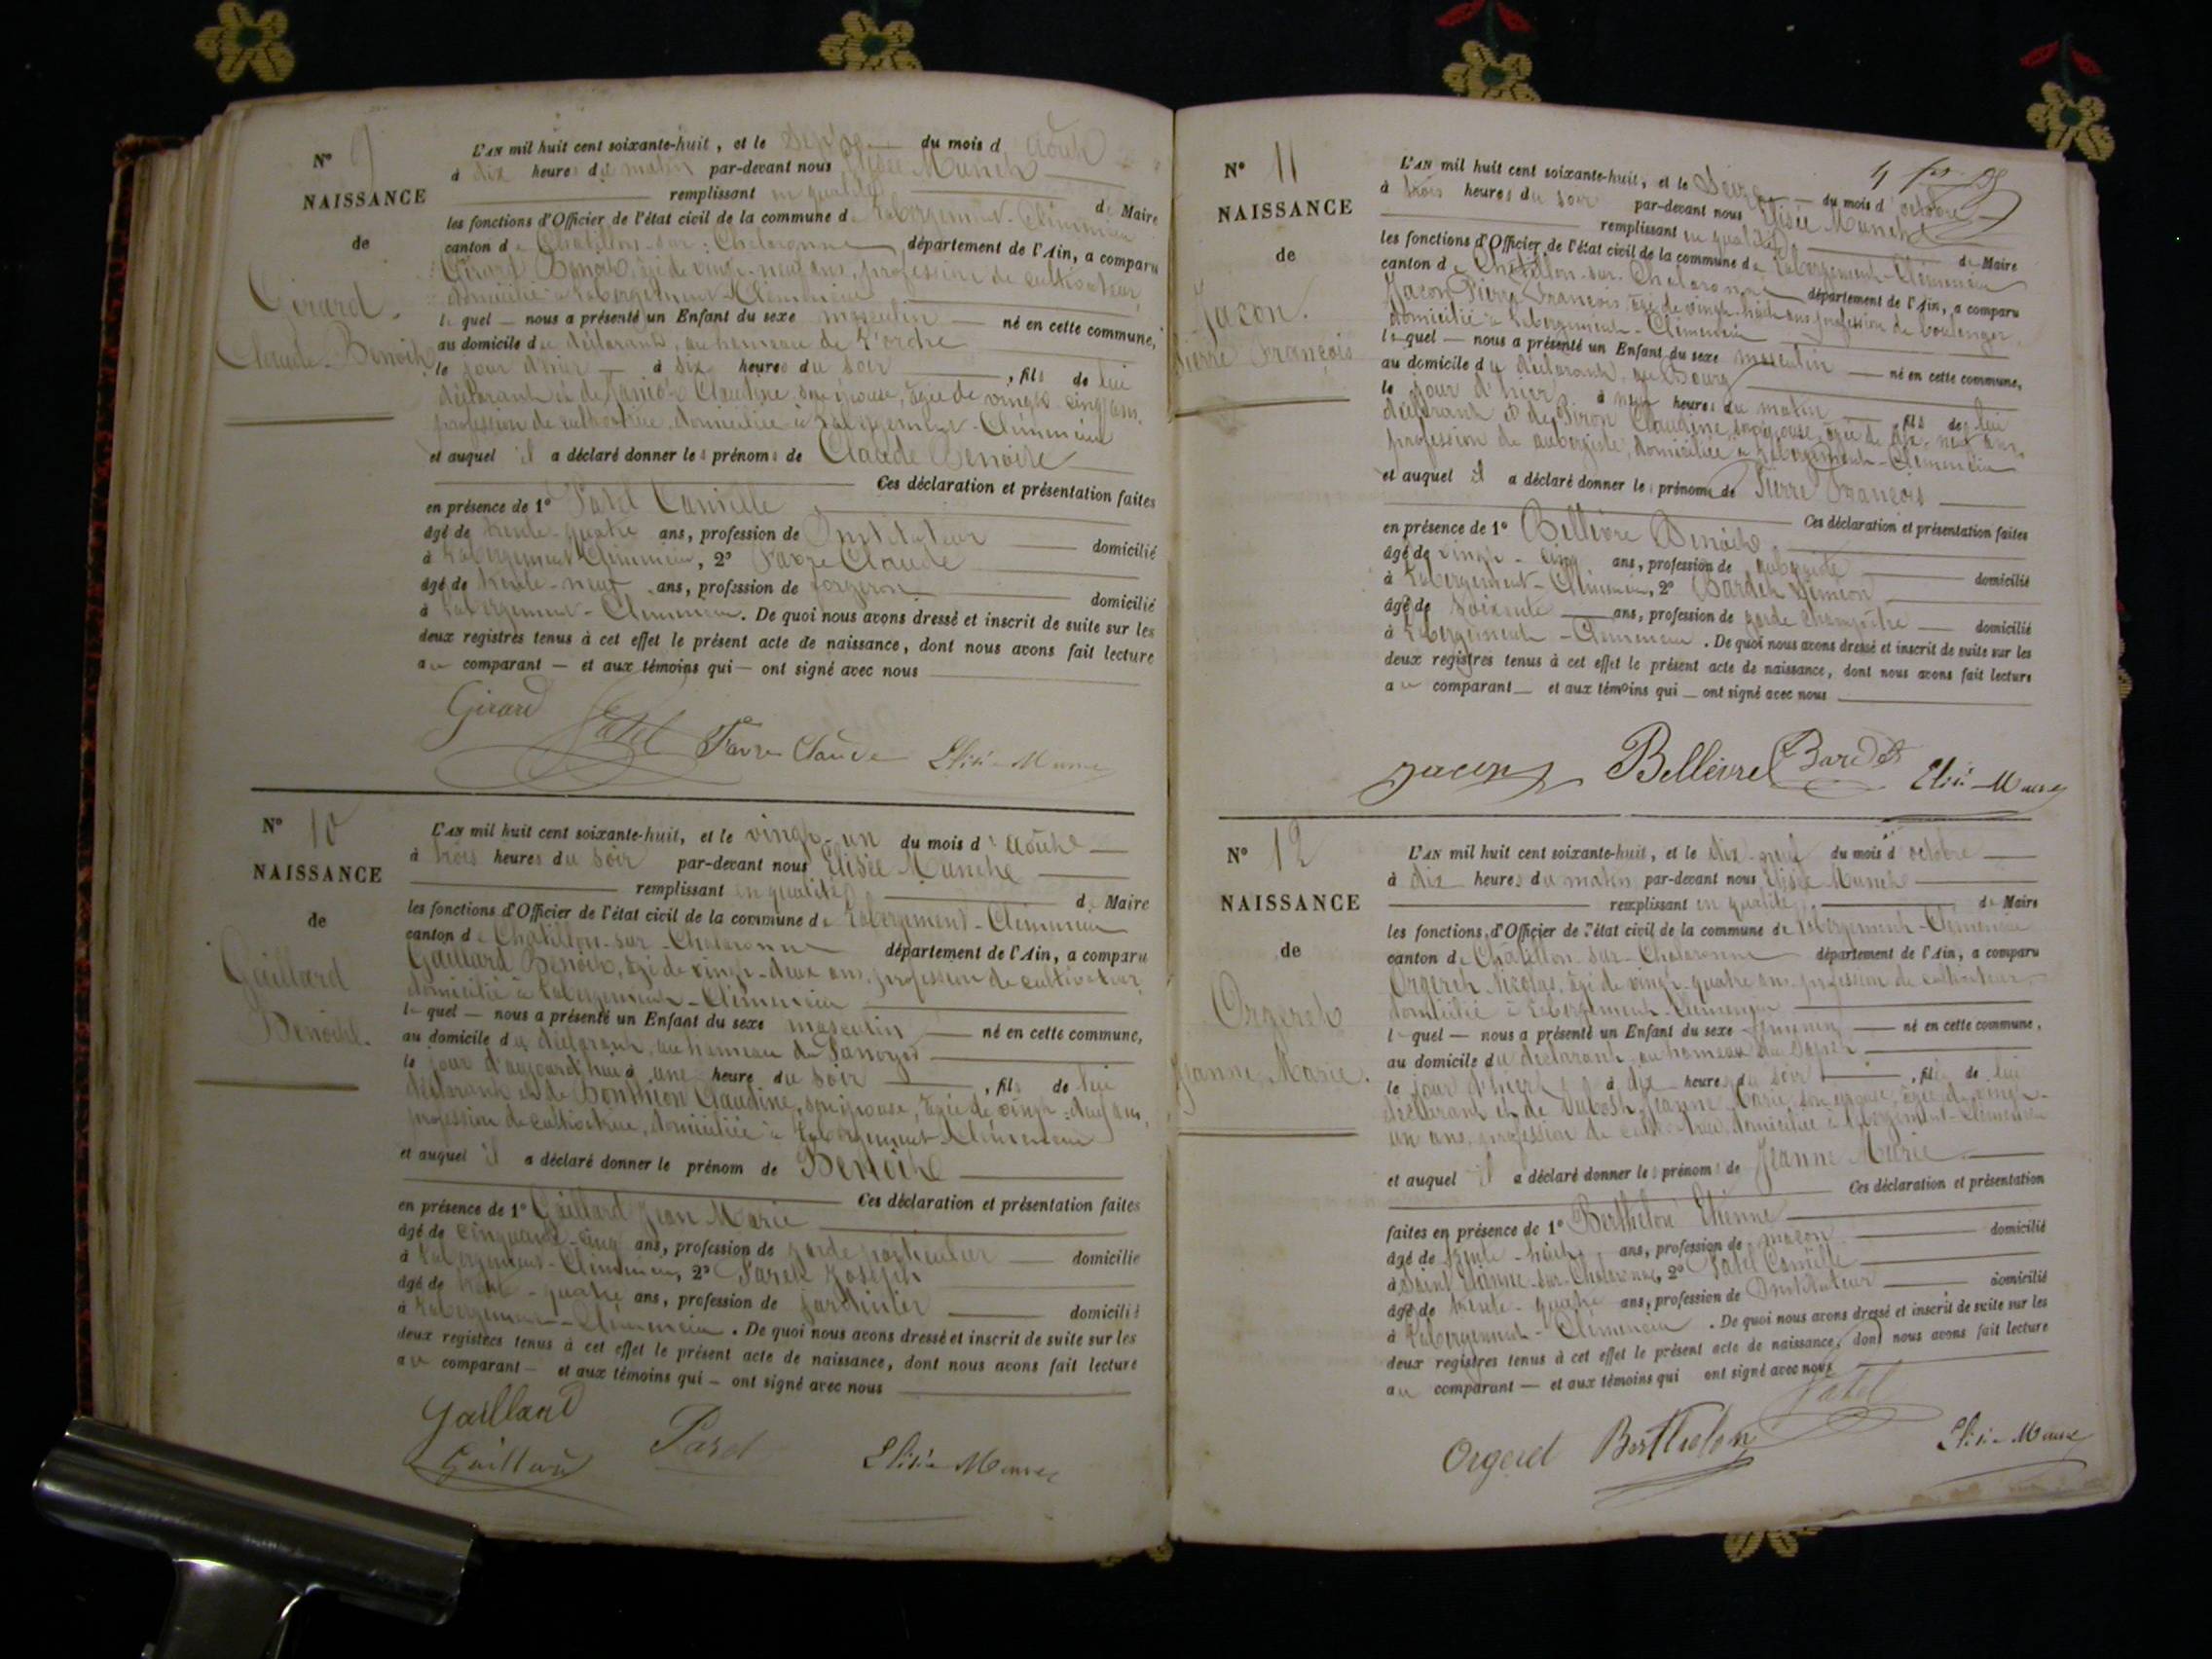 N° 9
NAISSANCE
de
Girard
Claude-Benoit
L'AN mil huit cent soixante-huit, et le du mois d août
à dix heures du matin par-devant nous Elisée Munch
remplissant en qualité de Maire
les fonctions d'Officier de l'état civil de la commune de Labergement-Clémencia
canton de Châtillon-sur-Chalaronne, département de l'Ain, a comparu
Girard Benoit, âgé de vingt-neuf ans, profession de cultivateur,
domicilié à Labergement-Clémencia
lequel — nous a présenté un Enfant du sexe masculin — né en cette commune,
au domicile du déclarant, au hameau de
le jour d'hier — à six heures du soir, fils de lui
déclarant et de Claudine, son épouse, âgée de vingt-cinq ans,
profession de cultivatrice, domiciliée à Labergement-Clémencia
et auquel il a déclaré donner les prénoms de Claude Benoit
Ces déclaration et présentation faites
en présence de 1° Patel Camille
âgé de trente-quatre ans, profession de Instituteur domicilié
à Labergement-Clémencia, 2° Favre Claude
âgé de trente-neuf ans, profession de forgeron domicilié
à Labergement-Clémencia. De quoi nous avons dressé et inscrit de suite sur les
deux registres tenus à cet effet le présent acte de naissance, dont nous avons fait lecture
au comparant — et aux témoins qui — ont signé avec nous
Girard Patel Favre Claude Elisée Munch
N° 10
NAISSANCE
de
Gaillard
Benoit
L'AN mil huit cent soixante-huit, et le vingt-un du mois d'août
à trois heures du soir par-devant nous Elisée Munch
remplissant en qualité de Maire
les fonctions d'Officier de l'état civil de la commune de Labergement-Clémencia
canton de Châtillon-sur-Chalaronne département de l'Ain, a comparu
Gaillard Benoit, âgé de vingt-deux ans, profession de cultivateur,
domicilié à Labergement-Clémencia
lequel — nous a présenté un Enfant du sexe masculin — né en cette commune,
au domicile du déclarant, au hameau de
le jour d'aujourd'hui à une heure du soir, fils de lui
déclarant et de Claudine, son épouse, âgée de vingt- ans,
profession de cultivatrice, domiciliée à Labergement-Clémencia
et auquel il a déclaré donner le prénom de Benoit
Ces déclaration et présentation faites
en présence de 1° Gaillard Jean Marie
âgé de cinquante-cinq ans, profession de garde particulier domicilié
à Labergement-Clémencia, 2° Joseph
âgé de trente-quatre ans, profession de jardinier domicilié
à Labergement-Clémencia. De quoi nous avons dressé et inscrit de suite sur les
deux registres tenus à cet effet le présent acte de naissance, dont nous avons fait lecture
au comparant — et aux témoins qui — ont signé avec nous
Gaillard
Gaillard Elisée Munch
N° 11
NAISSANCE
de
Jacon
Pierre François
L'AN mil huit cent soixante-huit, et le du mois d'octobre
à trois heures du soir par-devant nous Elisée Munch
remplissant en qualité de Maire
les fonctions d'Officier de l'état civil de la commune de Labergement-Clémencia
canton de Châtillon-sur-Chalaronne département de l'Ain, a comparu
Jacon Pierre François, âgé de vingt-huit ans, profession de boulanger,
domicilié à Labergement-Clémencia
lequel — nous a présenté un Enfant du sexe masculin — né en cette commune,
au domicile du déclarant, au Bourg
le jour d'hier à neuf heures du matin, fils de lui
déclarant et de Claudine, son épouse, âgée de dix-neuf ans,
profession de aubergiste, domiciliée à Labergement-Clémencia
et auquel il a déclaré donner les prénoms de Pierre François
Ces déclaration et présentation faites
en présence de 1° Bellèvre Benoit
âgé de vingt-cinq ans, profession de aubergiste domicilié
à Labergement-Clémencia, 2° Bardet Siméon
âgé de soixante ans, profession de garde champêtre domicilié
à Labergement-Clémencia. De quoi nous avons dressé et inscrit de suite sur les
deux registres tenus à cet effet le présent acte de naissance, dont nous avons fait lecture
au comparant — et aux témoins qui — ont signé avec nous
Jacon Bellèvre Bardet Elisée Munch
N° 12
NAISSANCE
de
Orgeret
Jeanne Marie
L'AN mil huit cent soixante-huit, et le dix-neuf du mois d'octobre
à dix heures du matin par-devant nous Elisée Munch
remplissant en qualité de Maire
les fonctions d'Officier de l'état civil de la commune de Labergement-Clémencia
canton de Châtillon-sur-Chalaronne département de l'Ain, a comparu
Orgeret Nicolas, âgé de vingt-quatre ans, profession de cultivateur,
domicilié à Labergement-Clémencia
lequel — nous a présenté un Enfant du sexe féminin — né en cette commune,
au domicile du déclarant, au hameau du
le jour d'hier à dix heures du soir, fille de lui
déclarant et de Jeanne Marie, son épouse, âgée de vingt-
un ans, profession de cultivatrice, domiciliée à Labergement-Clémencia
et auquel il a déclaré donner les prénoms de Jeanne Marie
Ces déclaration et présentation
faites en présence de 1° Berthelon Etienne
âgé de trente-huit ans, profession de maçon domicilié
à Saint Etienne-sur-Chalaronne, 2° Patel Camille
âgé de trente-quatre ans, profession de Instituteur domicilié
à Labergement-Clémencia. De quoi nous avons dressé et inscrit de suite sur les
deux registres tenus à cet effet le présent acte de naissance, dont nous avons fait lecture
au comparant — et aux témoins qui ont signé avec nous
Patel
Orgeret Berthelon Elisée Munch